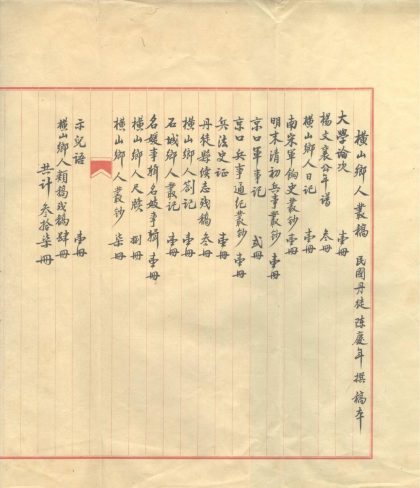 橫山鄉人叢稿 民國丹徒 陳慶年 撰 稿本
大學論次 壹冊
楊文襄公年譜 叁冊
橫山鄉人日記 壹冊
南宋軍餉史叢鈔 壹冊
明末清初兵事叢鈔 壹冊
京口軍事記 貳冊
京口兵事通紀叢鈔 壹冊
兵法史证 壹冊
丹徒縣續志殘稿 叁冊
橫山鄉人劄記 壹冊
石城鄉人叢記 壹冊
名媛事輯名妓事輯 壹冊
橫山鄉人尺牘 捌冊
橫山鄉人叢鈔 柒冊
示兒語 壹冊
橫山鄉人類稿殘稿 肆冊
共计 叁拾柒冊